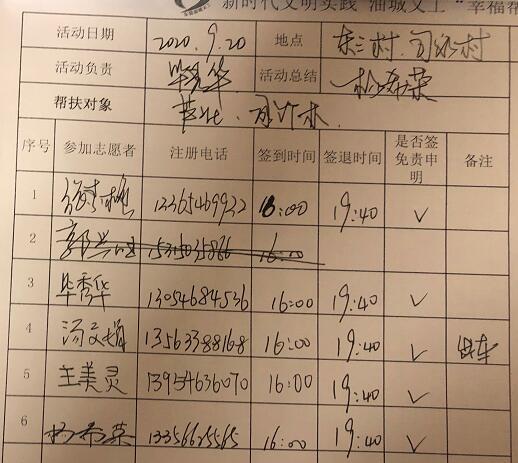 新时代文明实践 油城义工 "幸福
活动日期 2020.9.20 地点 东三村.
活动负责 毕秀华 活动总结 杨希荣
帮扶对象
序号 参加志愿者 注册电话 签到时间 签退时间 是否签免责申明 备注
1 13365469932 16:00 19:40 ✓
2 郭兴 16:00
3 毕秀华 13054684536 16:00 19:40 ✓
4 汤文娟 13563388168 16:00 19:40 ✓ 供车
5 王美灵 13954636070 16:00 19:40 ✓
6 杨希荣 13356625565 16:00 19:40 ✓